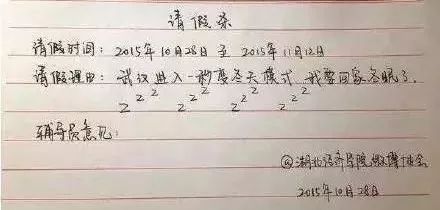 请假条
请假时间：2015年10月28日 至 2015年11月12日
请假理由：武汉进入一秒变冬天模式，我要回家冬眠了。
z z z z z z z z z z z z
辅导员意见：
@湖北经济学院微博协会
2015年10月28日